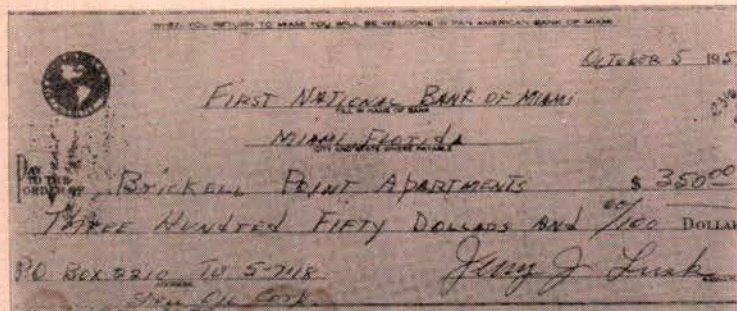 WHEN YOU RETURN TO MIAMI YOU WILL BE WELCOME IN PAN AMERICAN BANK OF MIAMI
OCTOBER 5 195
FIRST NATIONAL BANK OF MIAMI
FILL IN NAME OF BANK
MIAMI FLORIDA
CITY AND STATE WHERE PAYABLE
PAY TO THE ORDER OF BRICKELL POINT APARTMENTS $ 350 00
THREE HUNDRED FIFTY DOLLARS AND 00/100 DOLLA
P.O BOX 2210 TU 5-7418 Jerry J Lusk
ADDRESS
Shell Oil Corp.